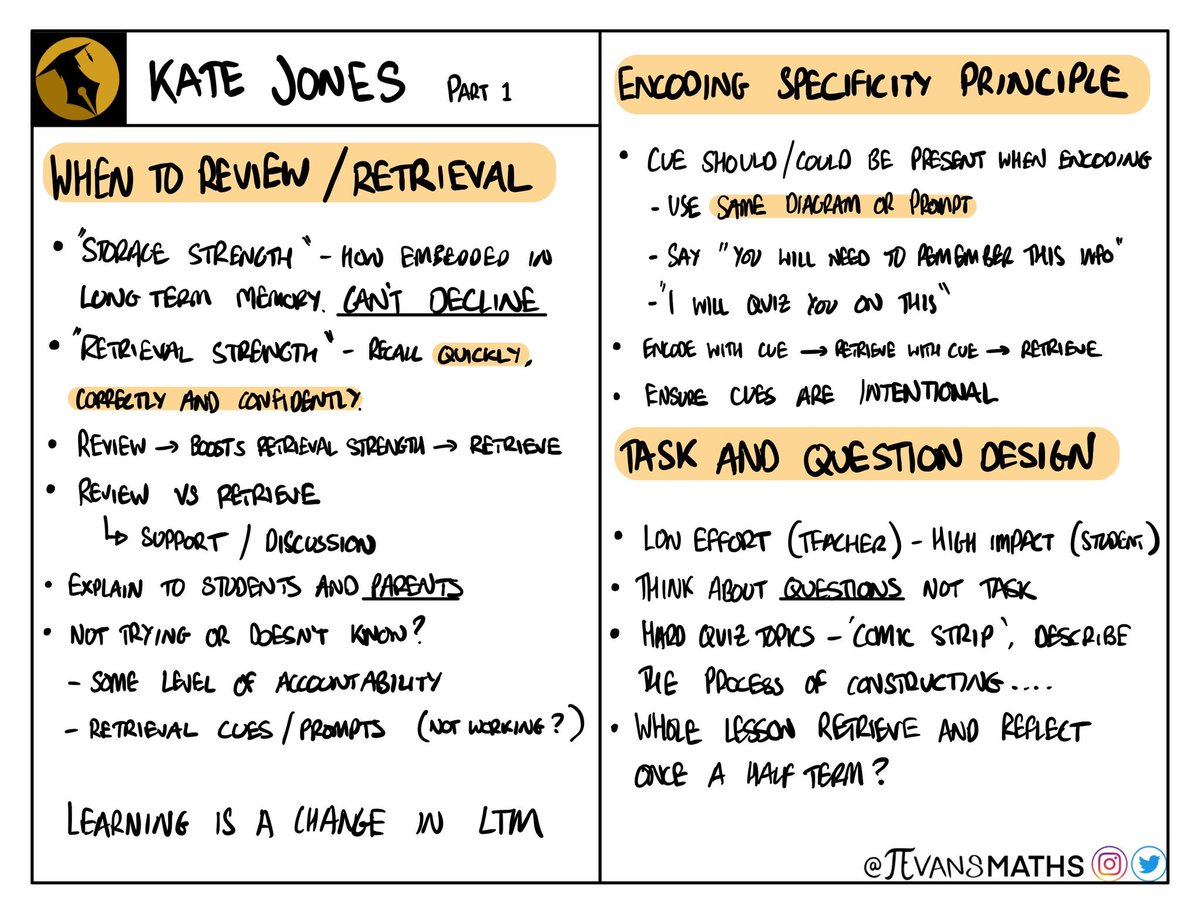 KATE JONES PART 1
WHEN TO REVIEW / RETRIEVAL
• "STORAGE STRENGTH" - HOW EMBEDDED IN
LONG TERM MEMORY. CAN'T DECLINE
• "RETRIEVAL STRENGTH" - RECALL QUICKLY,
CORRECTLY AND CONFIDENTLY.
• REVIEW → BOOSTS RETRIEVAL STRENGTH → RETRIEVE
• REVIEW VS RETRIEVE
↳ SUPPORT / DISCUSSION
• EXPLAIN TO STUDENTS AND PARENTS
• NOT TRYING OR DOESN'T KNOW?
- SOME LEVEL OF ACCOUNTABILITY
- RETRIEVAL CUES / PROMPTS (NOT WORKING?)
LEARNING IS A CHANGE IN LTM
ENCODING SPECIFICITY PRINCIPLE
• CUE SHOULD/COULD BE PRESENT WHEN ENCODING
- USE SAME DIAGRAM OR PROMPT
- SAY "YOU WILL NEED TO REMEMBER THIS INFO"
- "I WILL QUIZ YOU ON THIS"
• ENCODE WITH CUE → RETRIEVE WITH CUE → RETRIEVE
• ENSURE CUES ARE INTENTIONAL
TASK AND QUESTION DESIGN
• LOW EFFORT (TEACHER) - HIGH IMPACT (STUDENT)
• THINK ABOUT QUESTIONS NOT TASK
• HARD QUIZ TOPICS - 'COMIC STRIP', DESCRIBE
THE PROCESS OF CONSTRUCTING....
• WHOLE LESSON RETRIEVE AND REFLECT
ONCE A HALF TERM?
@πEVANSMATHS